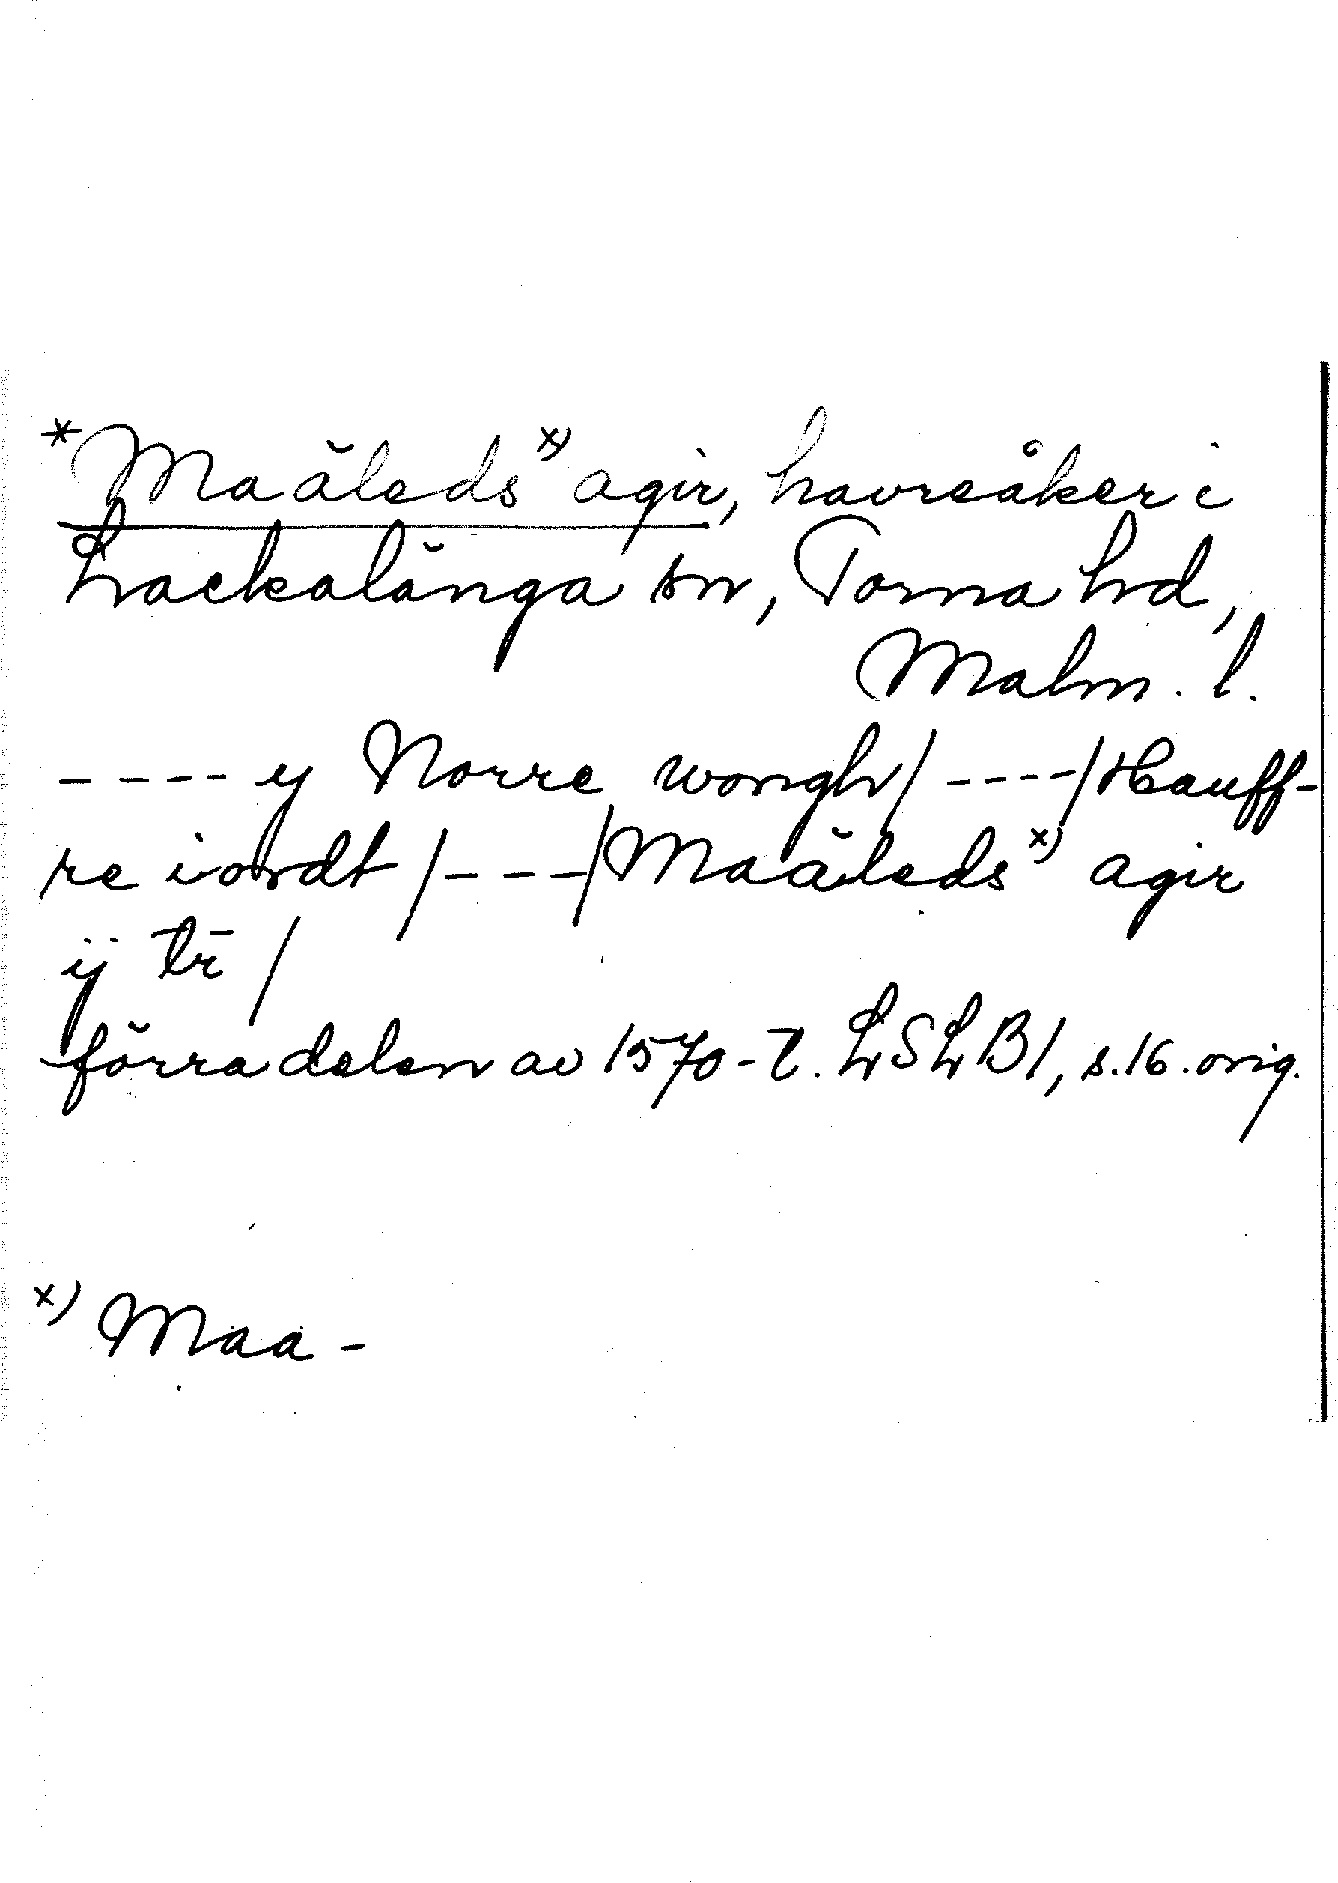 *Maäleds x) agir, havreåker i
Lackalänga sn, Torna hd,
Malm. l.
---- y Norre wongh / ---- / Hauff-
re iordt / --- / Maäleds x) agir
ÿ tr̄ /
förra delen av 1570-t. LSLB 1, s. 16. orig.
x) Maa -